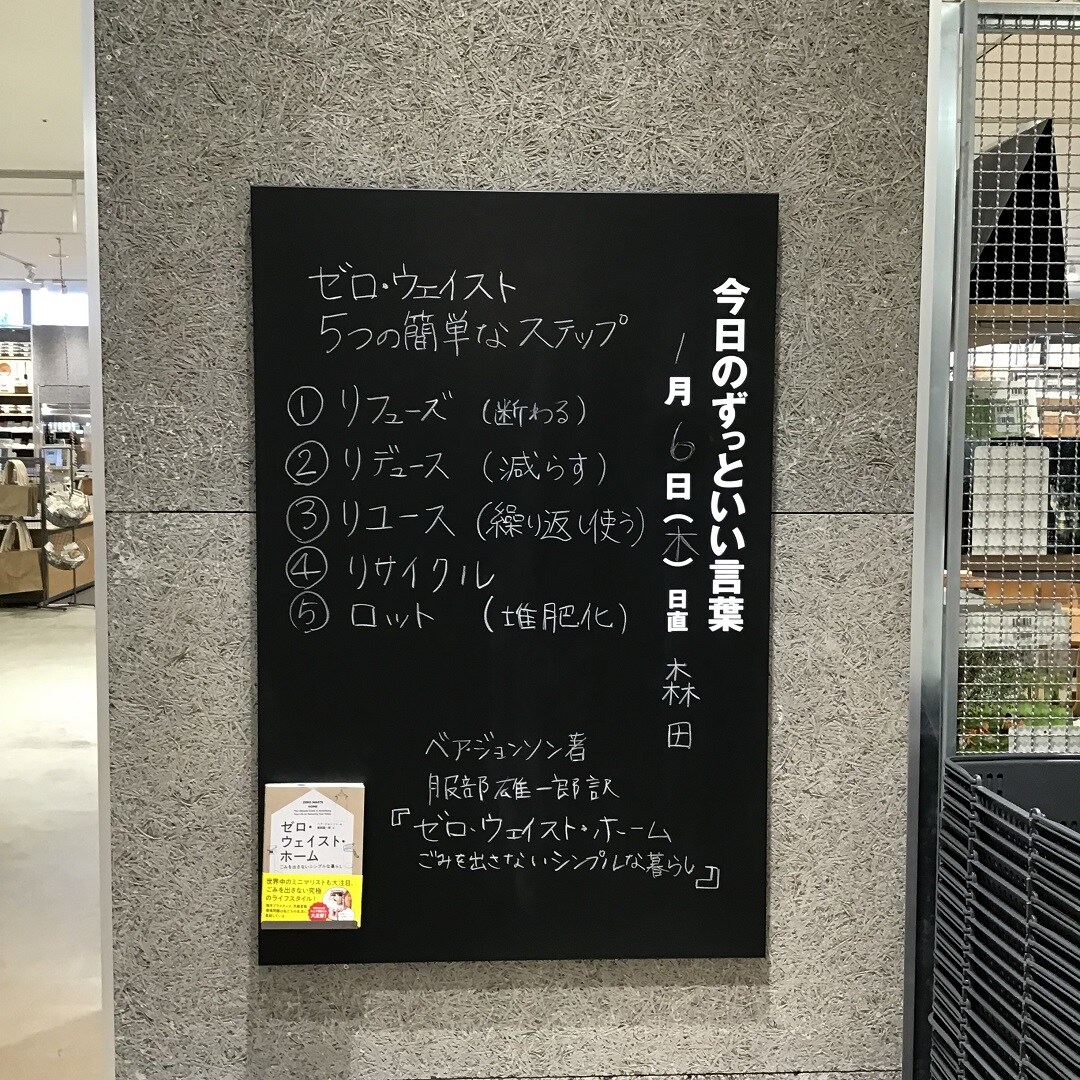 今日のずっといい言葉
1月6日(木) 日直 森田
ゼロ・ウェイスト
5つの簡単なステップ
① リフューズ (断わる)
② リデュース (減らす)
③ リユース (繰り返し使う)
④ リサイクル
⑤ ロット (堆肥化)
ベア・ジョンソン著
服部雄一郎訳
『ゼロ・ウェイスト・ホーム
ごみを出さないシンプルな暮らし』
ZERO WASTE
HOME
ゼロ・
ウェイスト・
ホーム
ごみを出さないシンプルな暮らし
世界中のミニマリストも大注目、
ごみを出さない究極
のライフスタイル!